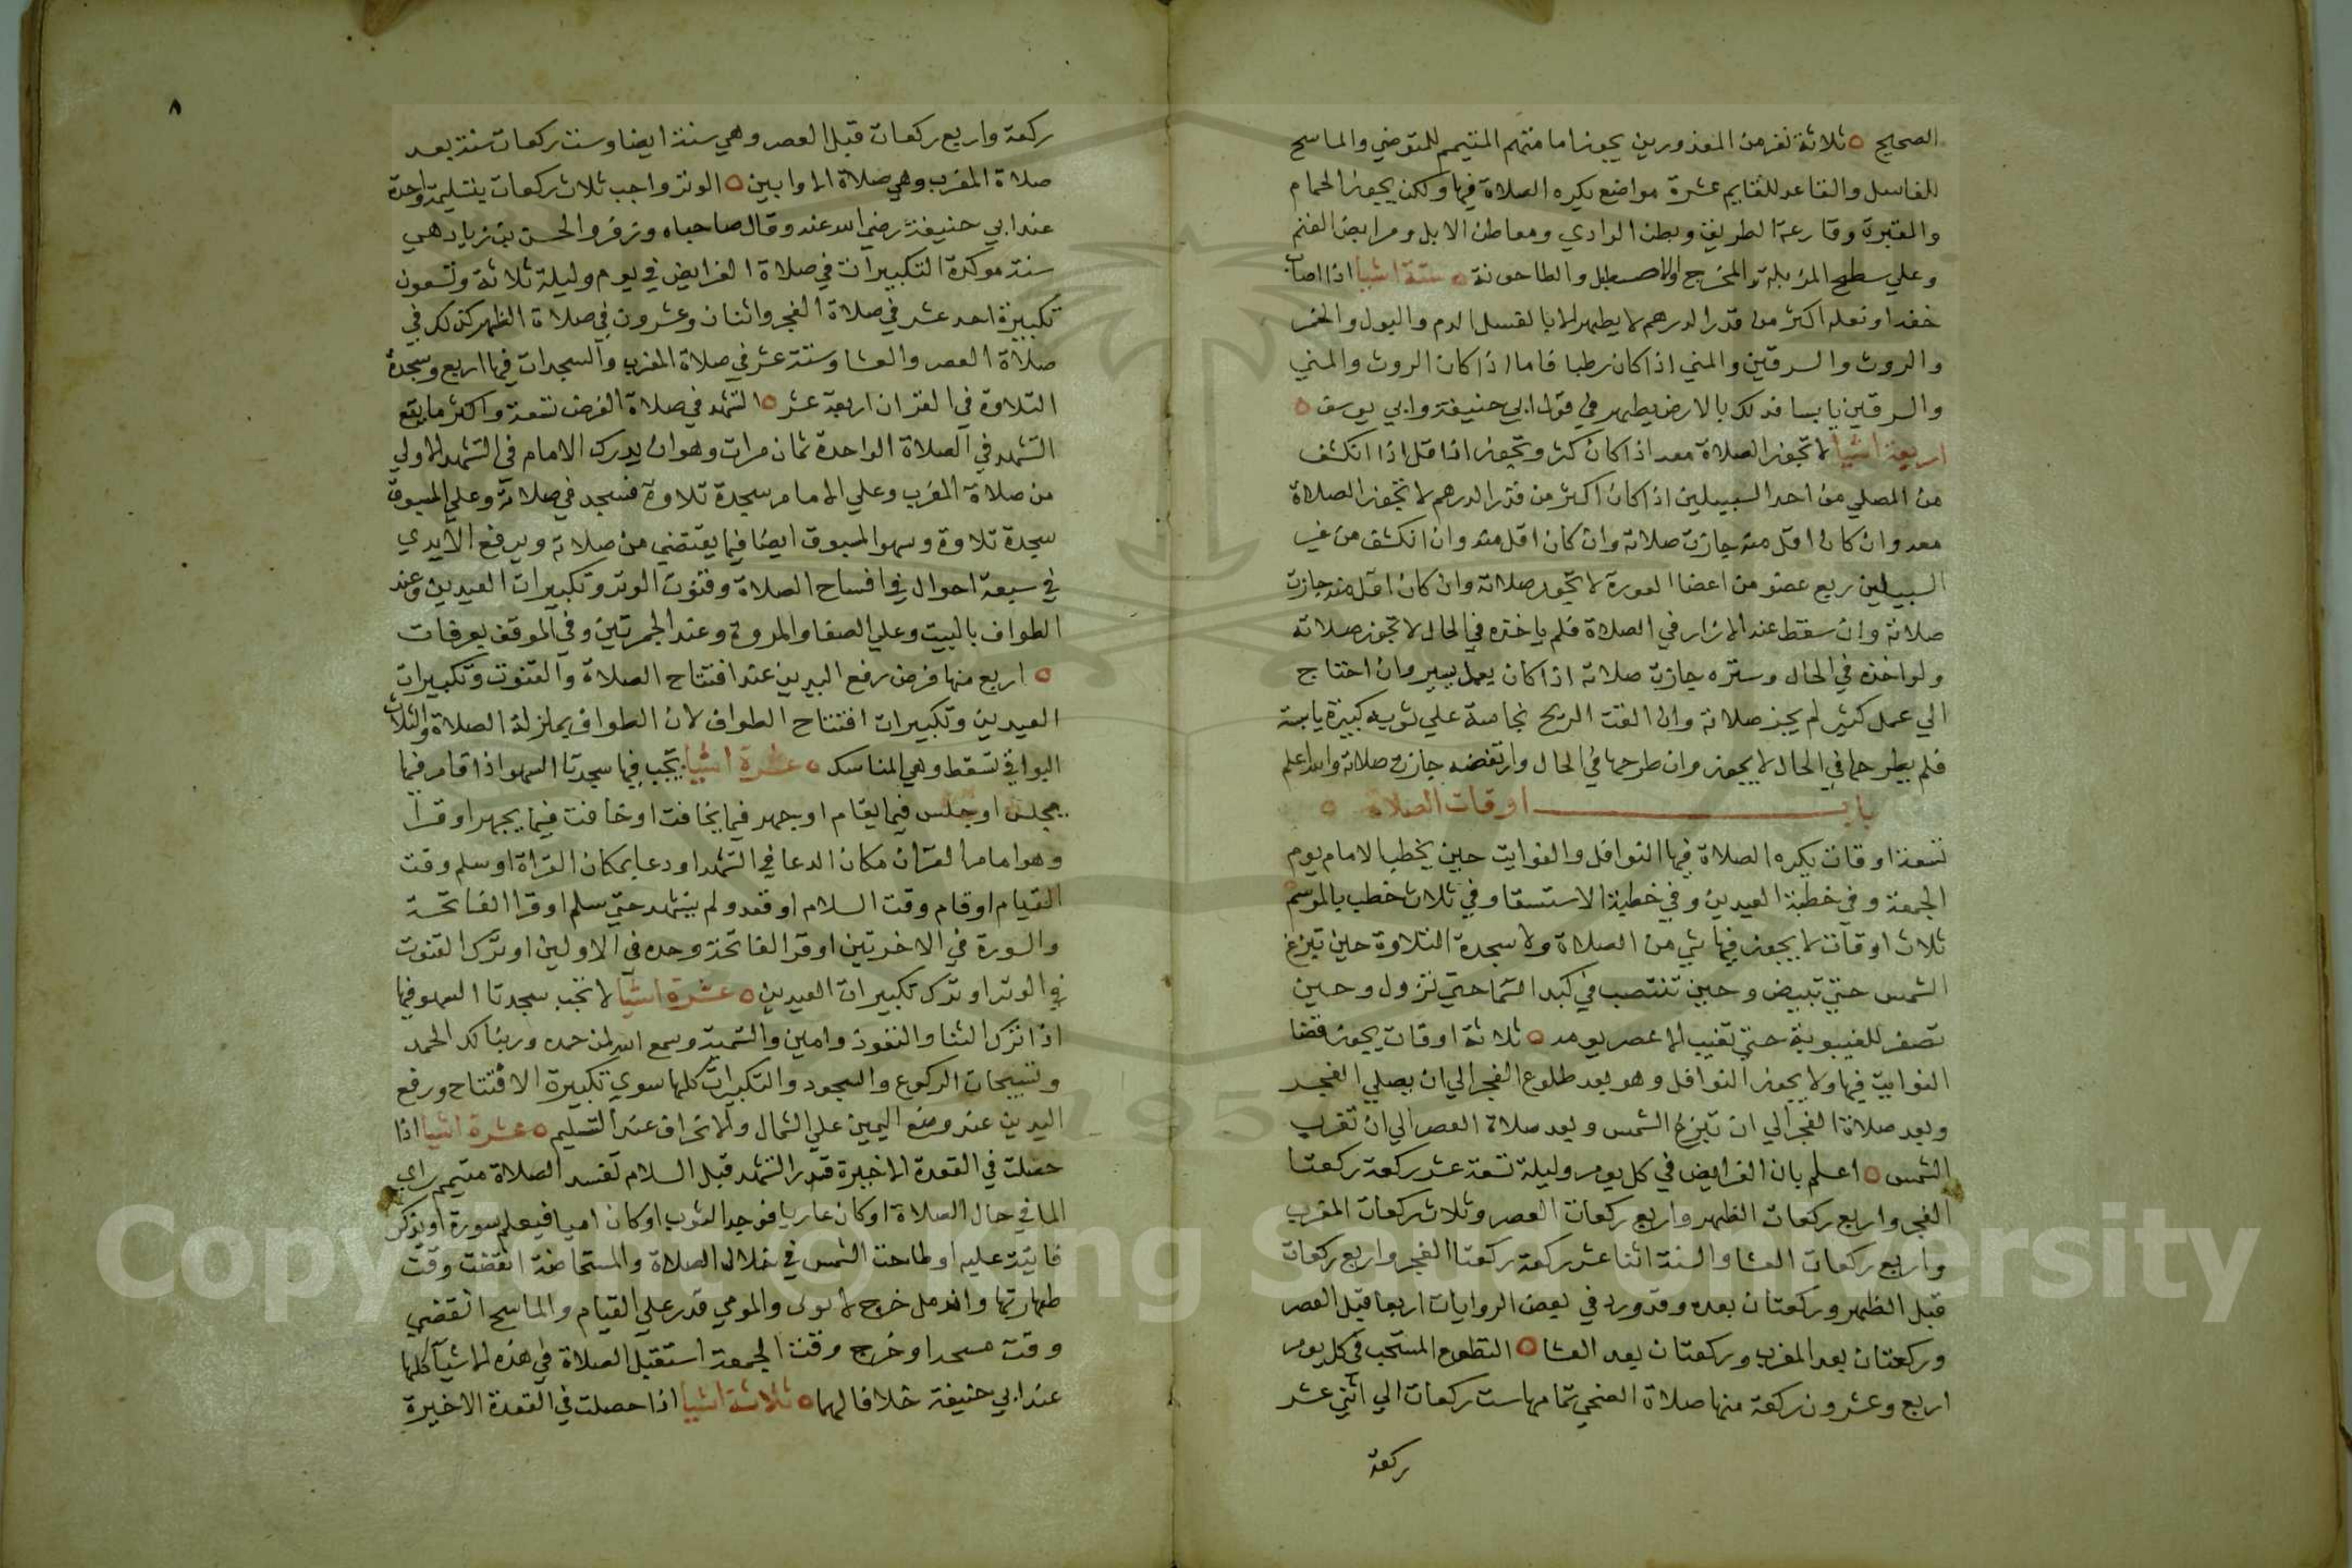 الصحيح ٥ ثلاثة نفر من المعذورين يجوز امامتهم المتيمم للمتوضي والماسح
للغاسل والقاعد للقايم عشرة مواضع يكره الصلاة فيها ولكن يجوز الحمام
والمقبرة وقارعة الطريق وبطن الوادي ومعاطن الابل ومرابض الغنم
وعلي سطح المزبلة والمخرج والاصطبل والطاحونة ٥ ستة اشيا اذا اصاب
خفه او نعله اكثر من قدر الدرهم لا يطهر الا بالغسل الدم والبول والخمر
والروث والسرقين والمني اذا كان رطبا فاما اذا كان الروث والمني
والسرقين يابسا فدلك بالارض يطهر في قول ابي حنيفة وابي يوسف ٥
اربعة اشيا لا تجوز الصلاة معه اذا كان كثر وتجوز اذا قل اذا انكشف
من المصلي من احد السبيلين اذا كان اكثر من قدر الدرهم لا تجوز الصلاة
معه وان كان اقل منه جازت صلاته وان كان اقل منه وان انكشف من غير
السبيلين ربع عضو من اعضا العورة لا تجوز صلاته وان كان اقل منه جازت
صلاته وان سقط عنه الازار في الصلاة فلم ياخذه في الحال لا تجوز صلاته
ولو اخذه في الحال وستره جازت صلاته اذا كان بعمل يسير وان احتاج
الي عمل كثير لم يجز صلاته وان القت الريح نجاسة علي ثوبه كبيرة يابسة
فلم يطرحها في الحال لا يجوز وان طرحها في الحال وارتفضه جازت صلاته والله اعلم
باب اوقات الصلاة ٥
تسعة اوقات يكره الصلاة فيها النوافل والفوايت حين يخطب الامام يوم
الجمعة وفي خطبة العيدين وفي خطبة الاستسقا وفي ثلاث خطب بالموسم
ثلاث اوقات لا يجوز فيها شي من الصلاة ولا سجدة التلاوة حين تبزغ
الشمس حتي تبيض وحين تنتصب في كبد السما حتي تزول وحين
تصفر للغيبوبة حتي تغيب الا عصر يومه ٥ ثلاثة اوقات يجوز قضا
الفوايت فيها ولا يجوز النوافل وهو بعد طلوع الفجر الي ان يصلي الفجر
وبعد صلاة الفجر الي ان تبزغ الشمس وبعد صلاة العصر الي ان تغرب
الشمس ٥ اعلم بان الفرايض في كل يوم وليلة تسعة عشر ركعة ركعتا
الفجر واربع ركعات الظهر واربع ركعات العصر وثلاث ركعات المغرب
واربع ركعات العشا والسنة اثنا عشر ركعة ركعتا الفجر واربع ركعات
قبل الظهر وركعتان بعده وقد ورد في بعض الروايات اربعا قبل العصر
وركعتان بعد المغرب وركعتان بعد العشا ٥ التطوع المستحب في كل يوم
اربع وعشرون ركعة منها صلاة الضحي تمامها ست ركعات الي اثني عشر
ركعة
٨
ركعة واربع ركعات قبل العصر وهي سنة ايضا وست ركعات سنة بعد
صلاة المغرب وهي صلاة الاوابين ٥ الوتر واجب ثلاث ركعات بتسليمة واحدة
عند ابي حنيفة رضي الله عنه وقال صاحباه وزفر والحسن بن زياد هي
سنة موكدة التكبيرات في صلاة الفرايض في يوم وليلة ثلاثة وتسعون
تكبيرة احد عشر في صلاة الفجر واثنان وعشرون في صلاة الظهر كذلك في
صلاة العصر والعشا وستة عشر في صلاة المغرب والسجدات فيها اربع وسجدة
التلاوة في القران اربعة عشر ٥ التشهد في صلاة الفرض تسعة واكثر ما يقع
التشهد في الصلاة الواحدة ثمان مرات وهو ان يدرك الامام في التشهد الاولي
من صلاة المغرب وعلي الامام سجدة تلاوة فسجد في صلاته وعلي المسبوق
سجدة تلاوة وسهو المسبوق ايضا فيما يقتضي من صلاته ويرفع الايدي
في سبعة احوال في افساح الصلاة وقنوت الوتر وتكبيرات العيدين وعند
الطواف بالبيت وعلي الصفا والمروة وعند الجمرتين وفي الموقف بعرفات
٥ اربع منها فرض رفع اليدين عند افتتاح الصلاة والقنوت وتكبيرات
العيدين وتكبيرات افتتاح الطواف لان الطواف بمنزلة الصلاة والثلاث
البواقي تسقط وهي المناسك ٥ عشرة اشيا يجب فيها سجدتا السهو اذا قام فيما
يجلس او جلس فيما يقام او جهر فيما يخافت او خافت فيما يجهر او قرا
وهو امام القران مكان الدعا في التشهد او دعا بمكان القراة او سلم وقت
القيام او قام وقت السلام او قعد ولم يتشهد حتي سلم او قرا الفاتحة
والسورة في الاخرتين او قرا الفاتحة وحده في الاولين او ترك القنوت
في الوتر او ترك تكبيرات العيدين ٥ عشرة اشيا لا تجب سجدتا السهو فيها
اذا ترك الثنا والتعوذ وامين والتسمية وسمع الله لمن حمده وربنا لك الحمد
وتسبيحات الركوع والسجود والتكبرات كلها سوي تكبيرة الافتتاح ورفع
اليدين عند وضع اليمين علي الشمال والانحراف عند التسليم ٥ عشرة اشيا اذا
حصلت في القعدة الاخيرة قدر التشهد قبل السلام تفسد الصلاة متيمم راي
الما في حال الصلاة او كان عاريا فوجد الثوب او كان اميا فيعلم سورة او يذكر
فايتة عليه او طلعت الشمس في خلال الصلاة والمستحاضة انقضت وقت
طهارتها واندمل خروج والمومي قدر علي القيام والماسح انقضي
وقت مسحه او خرج وقت الجمعة استقبل الصلاة في هذه الاشيآ كلها
عند ابي حنيفة خلافا لهما ٥ ثلاثة اشيا اذا حصلت في القعدة الاخيرة
Copyright © King Saud University
1957